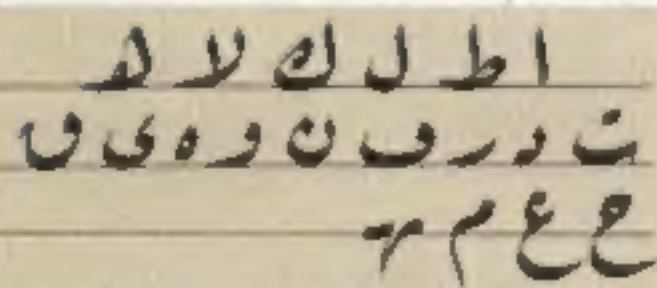 ا ط ل ك لا لا
ث د ر ف ن و ه ى ق
ح ع م